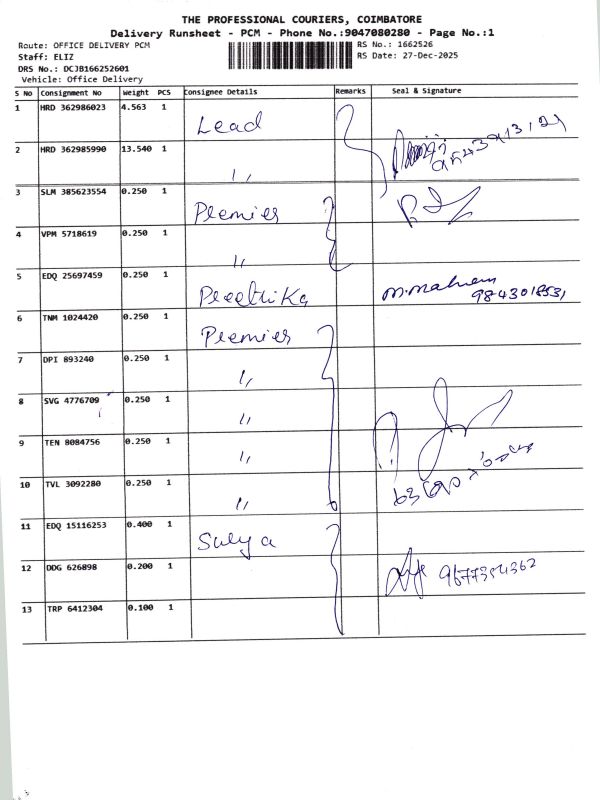 THE PROFESSIONAL COURIERS, COIMBATORE
Delivery Runsheet - PCM - Phone No.:9047080280 - Page No.:1
Route: OFFICE DELIVERY PCM
RS No.: 1662526
Staff: ELIZ
RS Date: 27-Dec-2025
DRS No.: DCJB166252601
Vehicle: Office Delivery
S No Consignment No Weight PCS Consignee Details Remarks Seal & Signature
1 HRD 362986023 4.563 1 Lead
2 HRD 362985990 13.540 1 〃
3 SLM 385623554 0.250 1 Premier
4 VPM 5718619 0.250 1 〃
5 EDQ 25697459 0.250 1 Preethika
6 TNM 1024420 0.250 1 Premier
7 DPI 893240 0.250 1 〃
8 SVG 4776709 0.250 1 〃
9 TEN 8084756 0.250 1 〃
10 TVL 3092280 0.250 1 〃
11 EDQ 15116253 0.400 1
12 DDG 626898 0.200 1
13 TRP 6412304 0.100 1